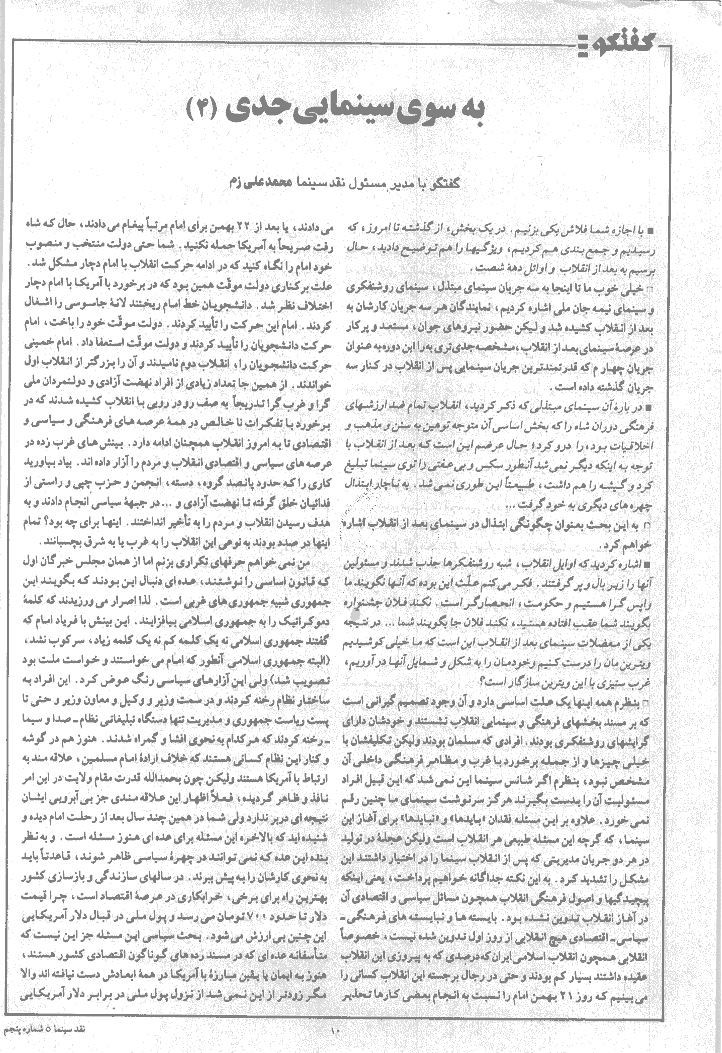 گفتگو
به سوی سینمایی جدی (۴)
گفتگو با مدیر مسئول نقد سینما محمدعلی زم
■ با اجازه شما فلاش بکی بزنیم. در یک بخش، از گذشته تا امروز، که
رسیدیم و جمع بندی هم کردیم، ویژگیها را هم توضیح دادید، حال
برسیم به بعد از انقلاب و اوائل دههٔ شصت.
□ خیلی خوب ما تا اینجا به سه جریان سینمای مبتذل، سینمای روشنفکری
و سینمای نیمه جان ملی اشاره کردیم، نمایندگان هر سه جریان کارشان به
بعد از انقلاب کشیده شد و لیکن حضور نیروهای جوان، مستعد و پرکار
در عرصهٔ سینمای بعد از انقلاب، مشخصه جدی‌تری به را این دوره به عنوان
جریان چهارم که قدرتمندترین جریان سینمایی پس از انقلاب در کنار سه
جریان گذشته داده است.
■ در بارهٔ آن سینمای مبتذلی که ذکر کردید، انقلاب تمام ضد ارزشهای
فرهنگی دوران شاه را که بخش اساسی آن متوجه توهین به سنن و مذهب و
اخلاقیات بود، را درو کرد؛ حال عرضم این است که بعد از انقلاب با
توجه به اینکه دیگر نمی شد آنطور سکس و بی‌عفتی را توی سینما تبلیغ
کرد و گیشه را هم داشت، طبیعتاً این طوری نمی شد. به ناچار ابتذال
چهره های دیگری به خود گرفت...
□ به این بحث بعنوان چگونگی ابتذال در سینمای بعد از انقلاب اشاره
خواهم کرد.
■ اشاره کردید که اوایل انقلاب، شبه روشنفکرها جذب شدند و مسئولین
آنها را زیر بال و پر گرفتند. فکر می کنم علّت این بوده که آنها نگویند ما
واپس گرا هستیم و حکومت، انحصارگر است. نکند فلان جشنواره
بگویند شما عقب افتاده هستید، نکند فلان جا بگویند شما... در نتیجه
یکی از معضلات سینمای بعد از انقلاب این است که ما خیلی کوشیدیم
ویترین مان را درست کنیم و خودمان را به شکل و شمایل آنها در آوریم،
غرب ستیزی با این ویترین سازگار است؟
□ بنظرم همه اینها یک علت اساسی دارد و آن وجود تصمیم گیرانی است
که بر مسند بخشهای فرهنگی و سینمایی انقلاب نشستند و خودشان دارای
گرایشهای روشنفکری بودند. افرادی که مسلمان بودند ولیکن تکلیفشان با
خیلی چیزها و از جمله برخورد با غرب و مظاهر فرهنگی داخلی آن
مشخص نبود، بنظرم اگر شانس سینما این نمی شد که این قبیل افراد
مسئولیت آن را بدست بگیرند هرگز سرنوشت سینمای ما چنین رقم
نمی خورد. علاوه بر این مسئله فقدان «بایدها» و «نبایدها» برای آغاز این
سینما، که گرچه این مسئله طبیعی هر انقلاب است ولیکن عجلهٔ در تولید
در هر دو جریان مدیریتی که پس از انقلاب سینما را در اختیار داشتند این
مشکل را تشدید کرد. به این نکته جداگانه خواهیم پرداخت، یعنی اینکه
پیچیدگیها و اصول فرهنگی انقلاب همچون مسائل سیاسی و اقتصادی آن
در آغاز انقلاب تدوین نشده بود. بایسته ها و نبایسته های فرهنگی ـ
سیاسی ـ اقتصادی هیچ انقلابی از روز اول تدوین شده نیست، خصوصاً
انقلابی همچون انقلاب اسلامی ایران که درصدی که به پیروزی این انقلاب
عقیده داشتند بسیار کم بودند و حتی در رجال برجسته این انقلاب کسانی را
می بینیم که روز ۲۱ بهمن امام را نسبت به انجام بعضی کارها تحذیر
می دادند، یا بعد از ۲۲ بهمن برای امام مرتباً پیغام می دادند، حال که شاه
رفت صریحاً به آمریکا حمله نکنید. شما حتی دولت منتخب و منصوب
خود امام را نگاه کنید که در ادامه حرکت انقلاب با امام دچار مشکل شد.
علت برکناری دولت موقت همین بود که در برخورد با آمریکا با امام دچار
اختلاف نظر شد. دانشجویان خط امام ریختند لانهٔ جاسوسی را اشغال
کردند. امام این حرکت را تأیید کردند. دولت موقت خود را باخت، امام
حرکت دانشجویان را تأیید کردند و دولت موقت استعفا داد. امام خمینی
حرکت دانشجویان را، انقلاب دوم نامیدند و آن را بزرگتر از انقلاب اول
خواندند. از همین جا تعداد زیادی از افراد نهضت آزادی و دولتمردان ملی
گرا و غرب گرا تدریجاً به صف رو در رویی با انقلاب کشیده شدند که در
برخورد با تفکرات نا خالص در همهٔ عرصه های فرهنگی و سیاسی و
اقتصادی تا به امروز انقلاب همچنان ادامه دارد. بینش های غرب زده در
عرصه های سیاسی و اقتصادی انقلاب و مردم را آزار داده اند. بیاد بیاورید
کاری را که حدود پانصد گروه، دسته، انجمن و حزب چپی و راستی از
فدائیان خلق گرفته تا نهضت آزادی و... در جبههٔ سیاسی انجام دادند و به
هدف رسیدن انقلاب و مردم را به تأخیر انداختند. اینها برای چه بود؟ تمام
اینها در صدد بودند به نوعی این انقلاب را به غرب یا به شرق بچسبانند.
من نمی خواهم حرفهای تکراری بزنم اما از همان مجلس خبرگان اول
که قانون اساسی را نوشتند، عده ای دنبال این بودند که بگویند این
جمهوری شبیه جمهوری های غربی است. لذا اصرار می ورزیدند که کلمهٔ
دموکراتیک را به جمهوری اسلامی بیافزایند. این بینش با فریاد امام که
گفتند جمهوری اسلامی نه یک کلمه کم نه یک کلمه زیاد، سرکوب نشد،
(البته جمهوری اسلامی آنطور که امام می خواستند و خواست ملت بود
تصویب شد) ولی این آزارهای سیاسی رنگ عوض کرد. این افراد به
ساختار نظام رخنه کردند و در سمت وزیر و وکیل و معاون وزیر و حتی تا
پست ریاست جمهوری و مدیریت تنها دستگاه تبلیغاتی نظام ـ صدا و سیما
ـ رخنه کردند که هرکدام به نحوی افشا و گمراه شدند. هنوز هم در گوشه
و کنار این نظام کسانی هستند که خلاف ارادهٔ امام مسلمین، علاقه مند به
ارتباط با آمریکا هستند ولیکن چون بحمدالله قدرت مقام ولایت در این امر
نافذ و ظاهر گردیده، فعلاً اظهار این علاقه مندی جز بی آبرویی ایشان
نتیجه ای در بر ندارد ولی شما در همین چند سال بعد از رحلت امام دیده و
شنیده اید که بالاخره این مسئله برای عده ای هنوز مسئله است. و به نظر
بنده این عده که نمی توانند در چهرهٔ سیاسی ظاهر شوند، قاعدتاً باید
به نحوی کارشان را به پیش ببرند. در سالهای سازندگی و بازسازی کشور
بهترین راه برای برخی، خرابکاری در عرصهٔ اقتصاد است، چرا قیمت
دلار تا حدود ۷۰۰ تومان می رسد و پول ملی در قبال دلار آمریکایی
این چنین بی ارزش می شود. بحث سیاسی این مسئله جز این نیست که
متأسفانه عده ای که در مسند رده های گوناگون اقتصادی کشور هستند،
هنوز به ایمان یا یقین مبارزهٔ با آمریکا در همهٔ ابعادش دست نیافته اند والا
مگر زودتر از این نمی شد از نزول پول ملی در برابر دلار آمریکایی
۱۰
نقد سینما ۵ شماره پنجم